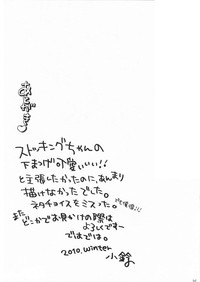 あとがき
ストッキングちゃんの
下まつげ可愛いいい!!
と主張したかったのに、あんまり
描けなかったでした。
ネタチョイスをミスった。
また、どこかでお見かけの際は
よろしくですー
ではでは。
2010.winter
小鈴